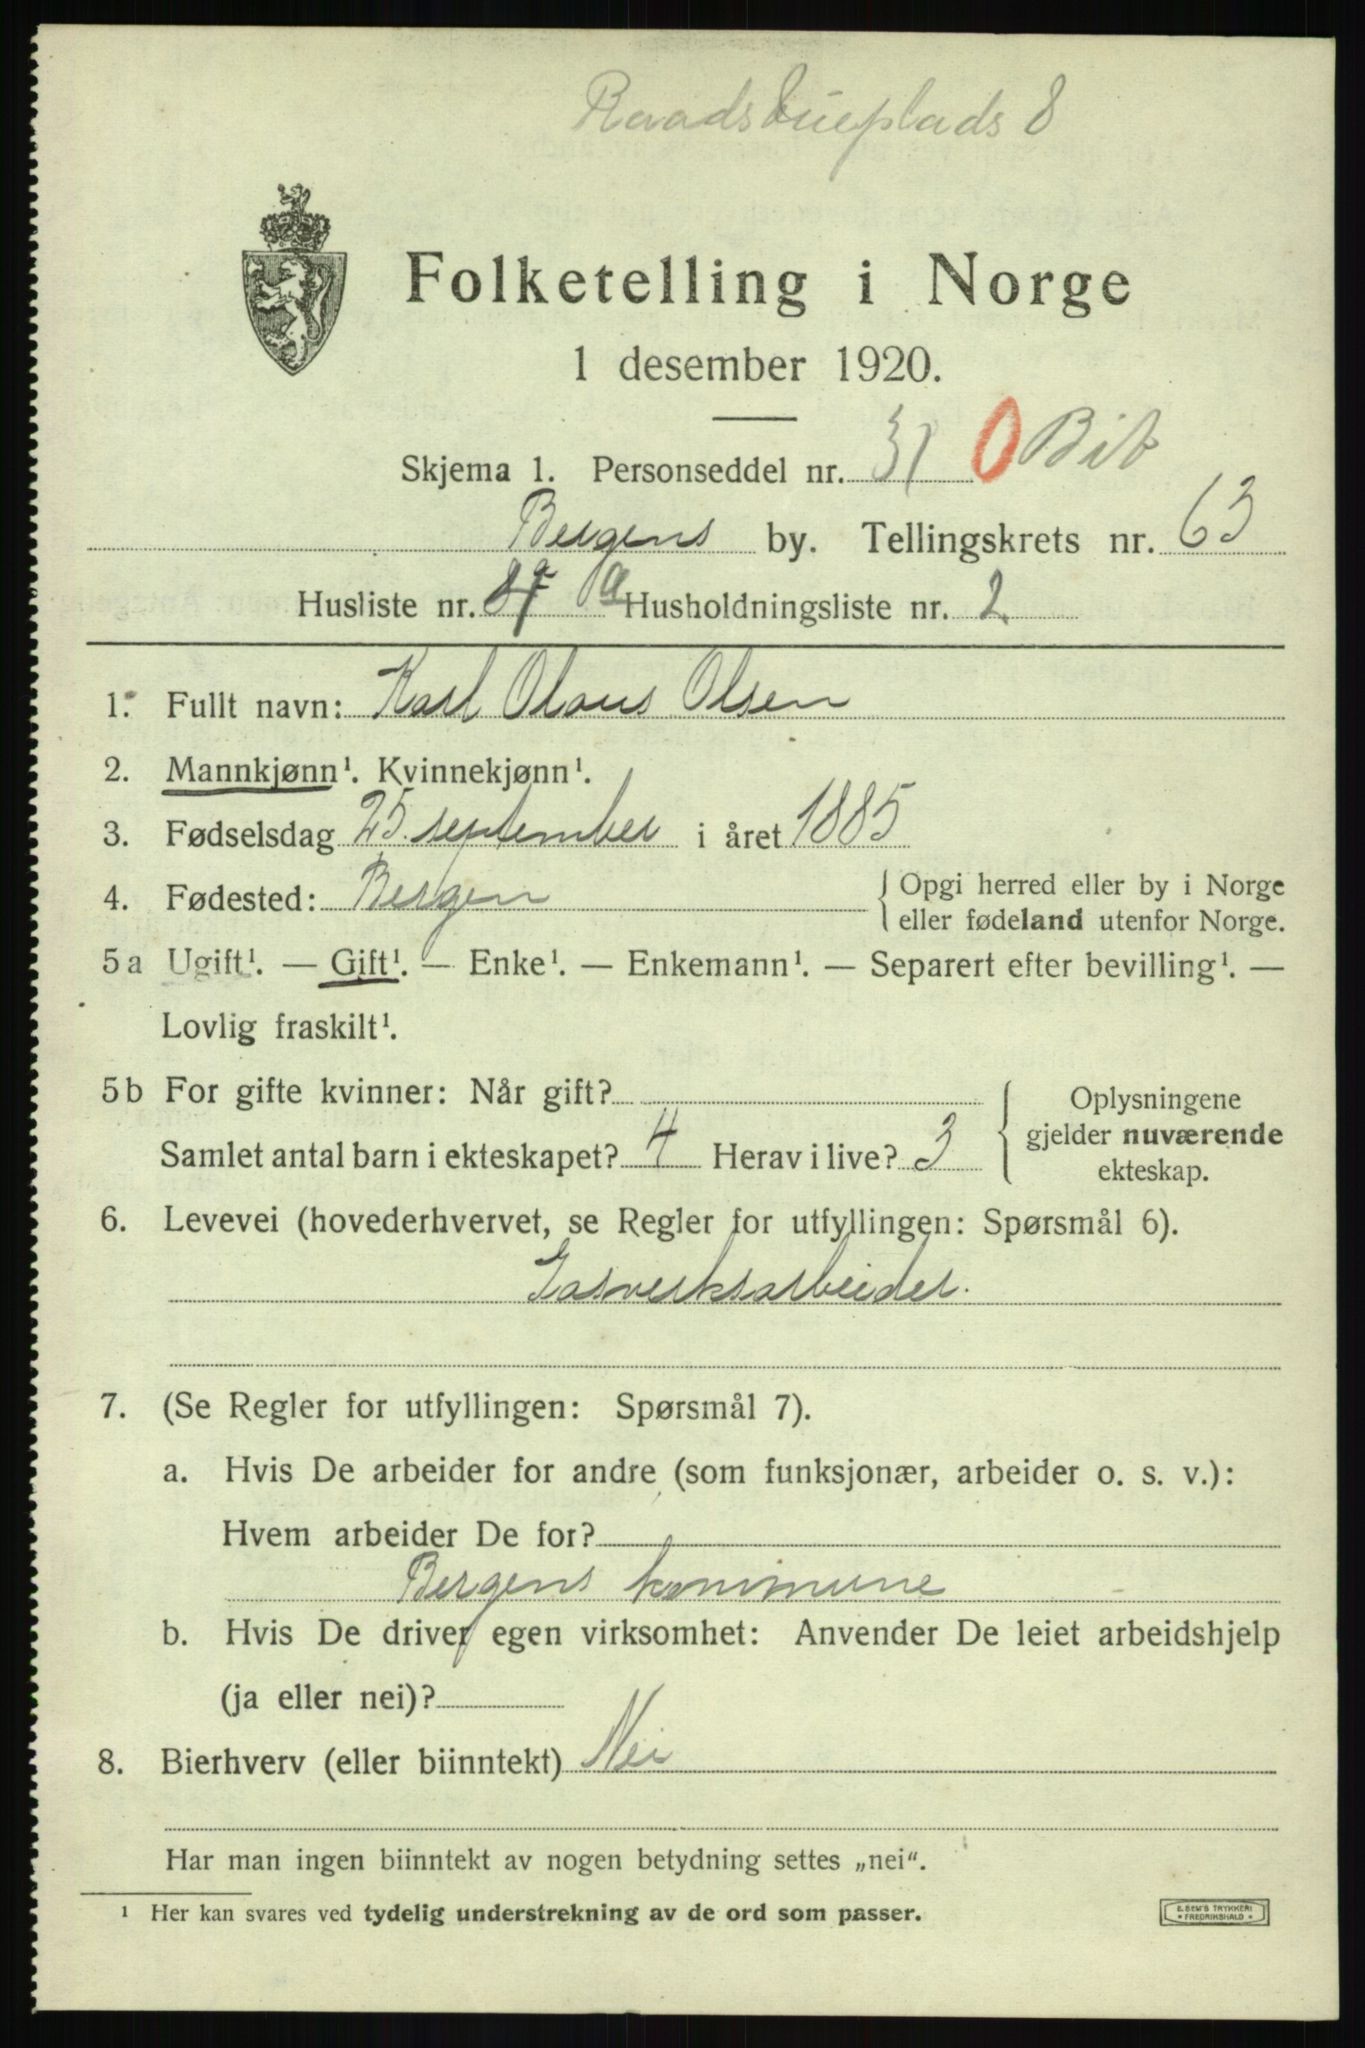 Raadstueplads 8
Folketelling i Norge
1 desember 1920.
Skjema 1. Personseddel nr. 31 0 Bib
Bergens by. Tellingskrets nr. 63
Husliste nr. a Husholdningsliste nr. 2
1. Fullt navn: Karl Olaus Olsen
2. Mannkjønn¹. Kvinnekjønn¹.
3. Fødselsdag 25. september i året 1885
4. Fødested: Bergen { Opgi herred eller by i Norge
eller fødeland utenfor Norge.
5a Ugift¹. — Gift¹. — Enke¹. — Enkemann¹. — Separert efter bevilling¹. —
Lovlig fraskilt¹.
5b For gifte kvinner: Når gift?
Samlet antal barn i ekteskapet? 4 Herav i live? 3
{ Oplysningene
gjelder nuværende
ekteskap.
6. Levevei (hovederhvervet, se Regler for utfyllingen: Spørsmål 6).
Gasverksarbeider.
7. (Se Regler for utfyllingen: Spørsmål 7).
a. Hvis De arbeider for andre (som funksjonær, arbeider o. s. v.):
Hvem arbeider De for?
Bergens kommune
b. Hvis De driver egen virksomhet: Anvender De leiet arbeidshjelp
(ja eller nei)?
8. Bierhverv (eller biinntekt) Nei
Har man ingen biinntekt av nogen betydning settes „nei“.
¹ Her kan svares ved tydelig understrekning av de ord som passer.
E. SEM'S TRYKKERI
• FREDRIKSHALD •